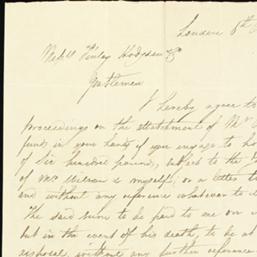 London 6th
Messrs Finlay Hodgson & Co
Gentlemen
I hereby agree to
proceedings on the attachment of Mr
funds in your hands if you engage to ho
of Six hundred pounds, subject to the
of Mr Wilson & myself; or a letter
and without any reference whatever to
The said sum to be paid to me on
but in the event of his death to be at
disposal without any further reference